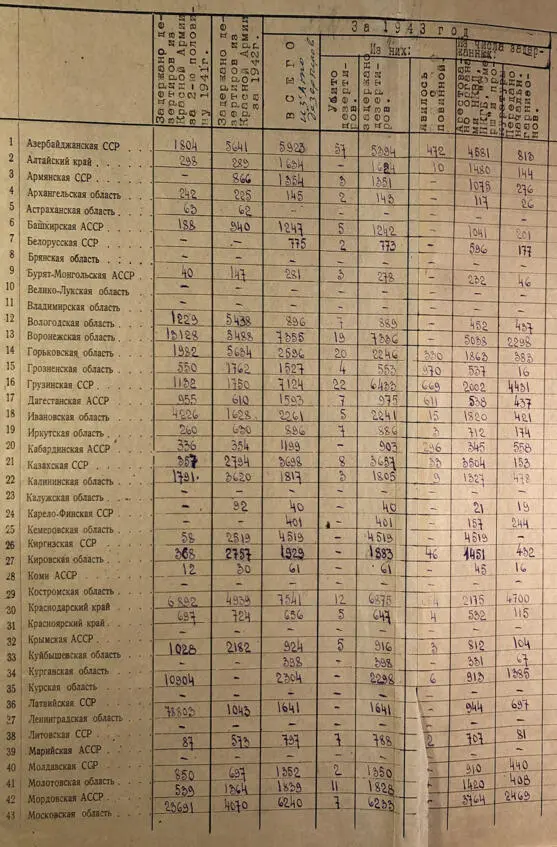 За 1943 год
Задержано де-
зертиров из
Красной Армии
за 2-ю полови-
ну 1941г.
Задержано де-
зертиров из
Красной Армии
за 1942г.
ВСЕГО
Из них:
Убито
дезерти-
ров.
задержано
дезерти-
ров.
явилось с
повинной
1 Азербайджанская ССР 1804 5641 5923 57 5394 472 4581 813
2 Алтайский край 298 289 1634 - 10 1480 144
3 Армянская ССР - 866 1354 3 1351 - 1075 276
4 Архангельская область 242 225 145 2 143 - 117 26
5 Астраханская область 63 62 - - - - - -
6 Башкирская АССР 188 940 1247 5 1242 - 1041 201
7 Белорусская ССР - - 775 2 773 - 596 177
8 Брянская область - - - - - - - -
9 Бурят-Монгольская АССР 40 147 281 3 278 - 232 46
10 Велико-Лукская область - - - - - - - -
11 Владимирская область - - - - - - - -
12 Вологодская область 1229 5438 896 7 889 - 452 437
13 Воронежская область 13128 3488 7355 19 7336 - 5038 2298
14 Горьковская область 1982 5634 2596 20 2246 330 1863 383
15 Грозненская область 550 1762 1527 4 553 970 537 16
16 Грузинская ССР 1132 1750 7124 22 6433 669 2002 4431
17 Дагестанская АССР 955 610 1593 7 975 611 538 437
18 Ивановская область 4226 1628 2261 5 2241 15 1820 421
19 Иркутская область 260 630 896 7 886 3 712 174
20 Кабардинская АССР 336 354 1199 - 903 296 345 558
21 Казахская ССР 357 2794 3698 8 3657 33 3504 153
22 Калининская область 1791 3620 1817 3 1805 9 1327 478
23 Калужская область - - - - - - - -
24 Карело-Финская ССР - 92 40 - 40 - 21 19
25 Кемеровская область - - 401 - 401 - 157 244
26 Киргизская ССР 58 2519 4519 - 4519 - 4519 -
27 Кировская область 368 2757 1929 - 1883 46 1451 432
28 Коми АССР 12 30 61 - 61 - 45 16
29 Костромская область - - - - - - - -
30 Краснодарский край 6892 4939 7541 12 6875 2175 4700
31 Красноярский край 697 724 656 5 647 4 532 115
32 Крымская АССР - - - - - - - -
33 Куйбышевская область 1028 2182 924 5 916 3 812 104
34 Курганская область - - 398 - 398 - 331 67
35 Курская область 10904 - 2304 - 2298 6 913 1385
36 Латвийская ССР - - - - - - - -
37 Ленинградская область 1043 1641 - 1641 - 944 697
38 Литовская ССР - - - - - - - -
39 Марийская АССР 87 573 797 7 788 2 707 81
40 Молдавская ССР - - - - - - - -
41 Молотовская область 850 697 1352 2 1350 - 910 440
42 Мордовская АССР 539 1364 1839 11 1828 - 1420 408
43 Московская область 23691 4070 6240 7 6233 - 3764 2469